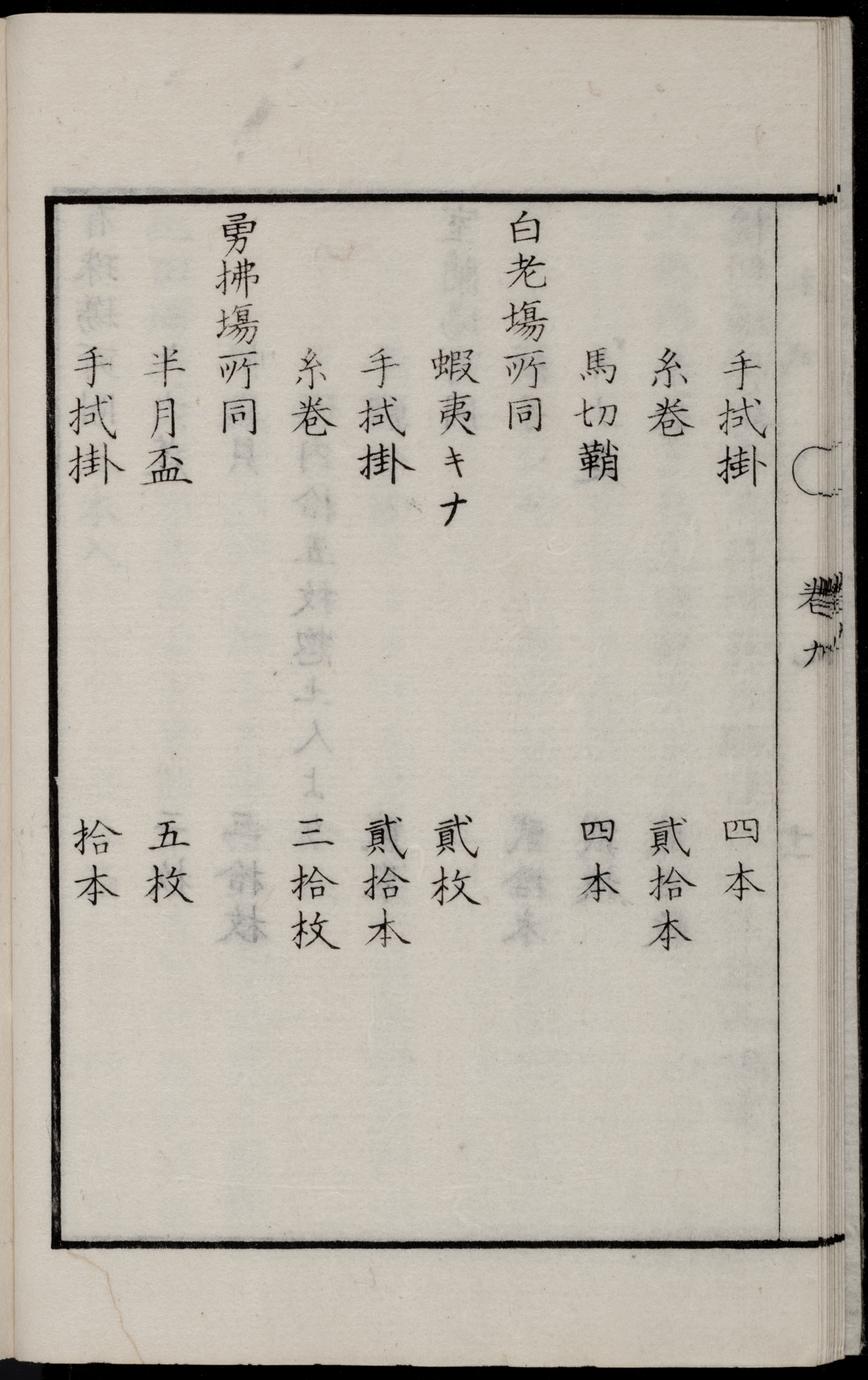 手拭掛 四本
糸巻 貳拾本
馬切鞘 四本
白老塲所同
蝦夷キナ 貳枚
手拭掛 貳拾本
糸巻 三拾枚
勇拂塲所同
半月盃 五枚
手拭掛 拾本
卷九